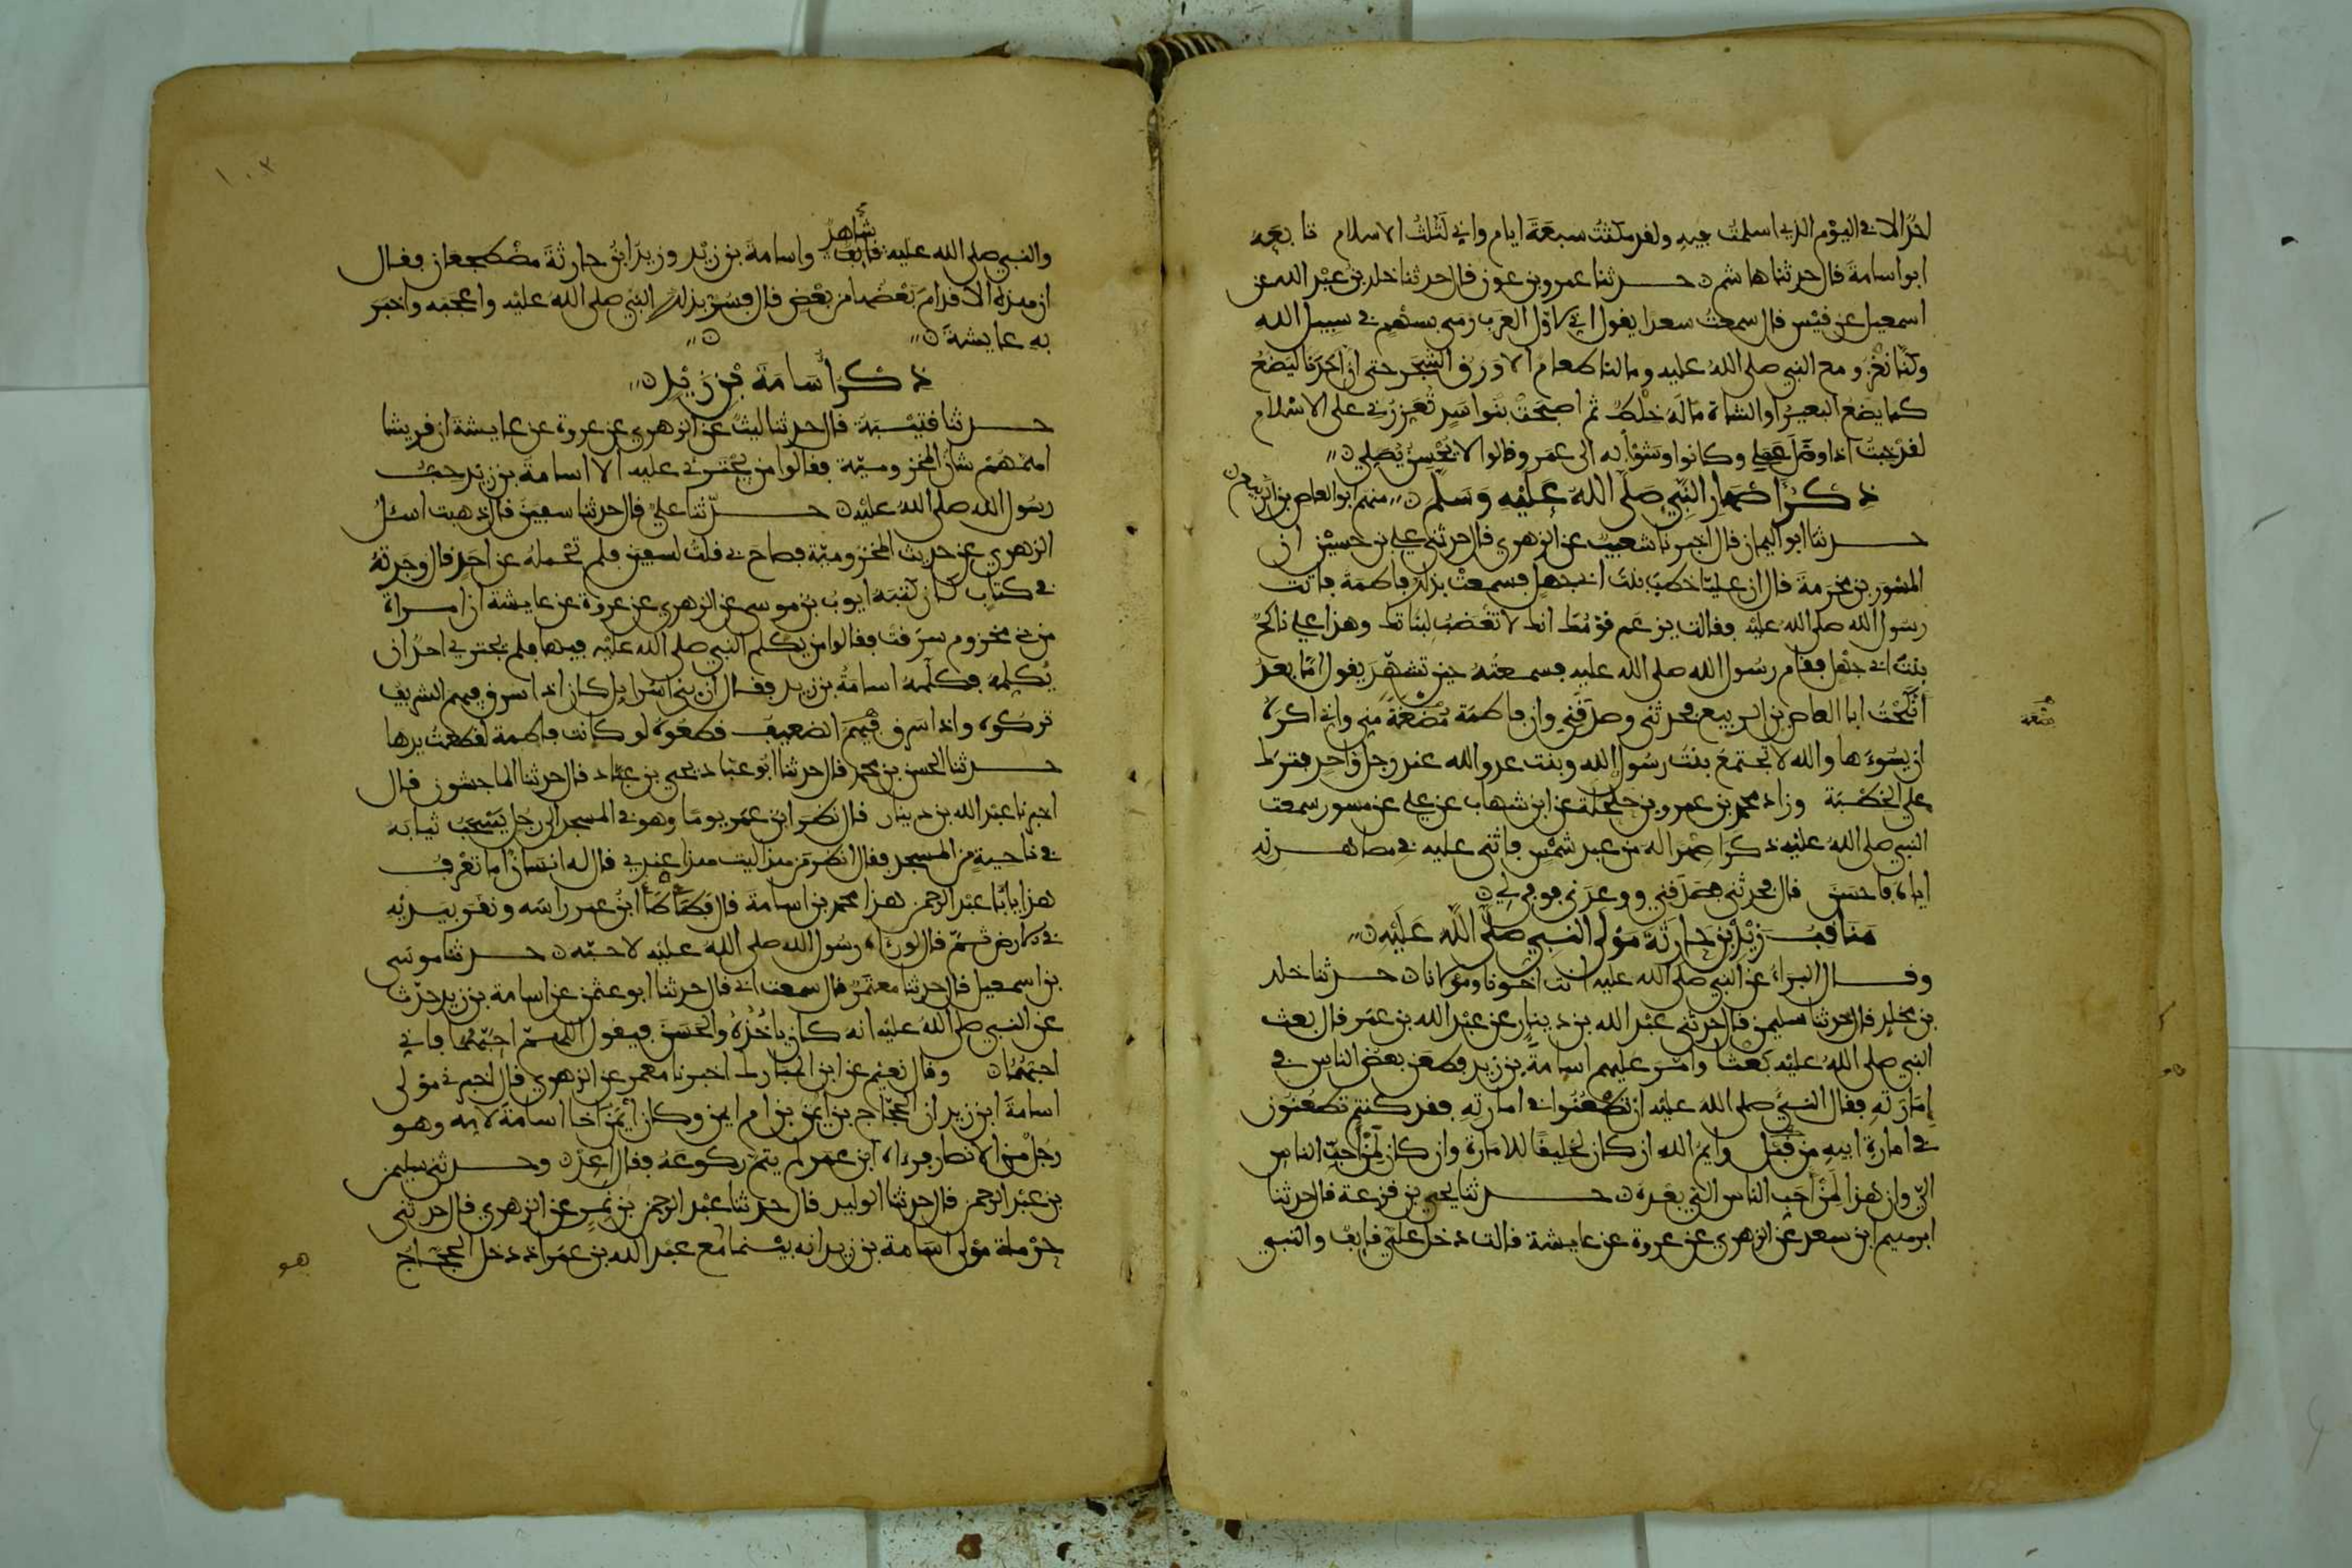 احد الا في اليوم الذي اسلمت فيه ولقد مكثت سبعة ايام واني لثلث الاسلام تابعه
ابو اسامة قال حدثنا هاشم حدثنا عمرو بن عون قال حدثنا خلد بن عبد الله عن
اسمعيل عن قيس قال سمعت سعدا يقول اني لاول العرب رمى بسهم في سبيل الله
وكنا نغزو مع النبي صلى الله عليه وما لنا طعام الا ورق الشجر حتى ان احدنا ليضع
كما يضع البعير او الشاة ما له خلط ثم اصبحت بنو اسد تعزرني على الاسلام
لقد خبت اذا وضل عملي وكانوا وشوا به الى عمر وقالوا لا يحسن يصلي
ذكر اصهار النبي صلى الله عليه وسلم منهم ابو العاص بن الربيع
حدثنا ابو اليمان قال اخبرنا شعيب عن الزهري قال حدثني علي بن حسين ان
المسور بن مخرمة قال ان عليا خطب بنت ابي جهل فسمعت بذلك فاطمة فاتت
رسول الله صلى الله عليه فقالت يزعم قومك انك لا تغضب لبناتك وهذا علي ناكح
بنت ابي جهل فقام رسول الله صلى الله عليه فسمعته حين تشهد يقول اما بعد
انكحت ابا العاص بن الربيع فحدثني وصدقني وان فاطمة بضعة مني واني اكره
ان يسوءها والله لا تجتمع بنت رسول الله وبنت عدو الله عند رجل واحد فترك
علي الخطبة وزاد محمد بن عمرو بن حلحلة عن ابن شهاب عن علي عن مسور سمعت
النبي صلى الله عليه ذكر صهرا له من عبد شمس فاثنى عليه في مصاهرته
اياه فاحسن قال فحدثني فصدقني ووعدني فوفى لي
مناقب زيد بن حارثة مولى النبي صلى الله عليه
وقال البراء عن النبي صلى الله عليه انت اخونا ومولانا حدثنا خلد
بن مخلد قال حدثنا سليمن قال حدثني عبد الله بن دينار عن عبد الله بن عمر قال بعث
النبي صلى الله عليه بعثا وامر عليهم اسامة بن زيد فطعن بعض الناس في
امارته فقال النبي صلى الله عليه ان تطعنوا في امارته فقد كنتم تطعنون
في امارة ابيه من قبل وايم الله ان كان لخليقا للامارة وان كان لمن احب الناس
الي وان هذا لمن احب الناس الي بعده حدثنا يحيى بن قزعة قال حدثنا
ابرهيم ابن سعد عن الزهري عن عروة عن عايشة قالت دخل علي قايف والنبي
والنبي صلى الله عليه شاهد واسامة بن زيد وزيد ابن حارثة مضطجعان فقال
ان هذه الاقدام بعضها من بعض قال فسر بذلك النبي صلى الله عليه واعجبه واخبر
به عايشة
ذكر اسامة بن زيد
حدثنا قتيبة قال حدثنا ليث عن الزهري عن عروة عن عايشة ان قريشا
اهمهم شان المخزومية فقالوا من يجترئ عليه الا اسامة بن زيد حب
رسول الله صلى الله عليه حدثنا علي قال حدثنا سفين قال ذهبت اسئل
الزهري عن حديث المخزومية فصاح بي قلت لسفين فلم تحمله عن احد قال وجدته
في كتاب كان كتبه ايوب بن موسى عن الزهري عن عروة عن عايشة ان امراة
من بني مخزوم سرقت فقالوا من يكلم النبي صلى الله عليه فيها فلم يجترئ احد ان
يكلمه فكلمه اسامة بن زيد فقال ان بني اسرايل كان اذا سرق فيهم الشريف
تركوه واذا سرق فيهم الضعيف قطعوه لو كانت فاطمة لقطعت يدها
حدثنا الحسن بن محمد قال حدثنا ابو عباد يحيى بن عباد قال حدثنا الماجشون قال
اخبرنا عبد الله بن دينار قال نظر ابن عمر يوما وهو في المسجد الى رجل يسحب ثيابه
في ناحية من المسجد فقال انظر من هذا ليت هذا عندي قال له انسان اما تعرف
هذا يا ابا عبد الرحمن هذا محمد بن اسامة قال فطاطا ابن عمر راسه ونقر بيديه
في الارض ثم قال لو راه رسول الله صلى الله عليه لاحبه حدثنا موسى
بن اسمعيل قال حدثنا معتمر قال سمعت ابي قال حدثنا ابو عثمن عن اسامة بن زيد حدث
عن النبي صلى الله عليه انه كان ياخذه والحسن فيقول اللهم احبهما فاني
احبهما وقال نعيم عن ابن المبارك اخبرنا معمر عن الزهري قال اخبرني مولى
اسامة ابن زيد ان الحجاج بن ايمن بن ام ايمن وكان ايمن اخا اسامة لامه وهو
رجل من الانصار فرءاه ابن عمر لم يتم ركوعه فقال اعد وحدثني سليمن
بن عبد الرحمن قال حدثنا الوليد قال حدثنا عبد الرحمن بن نمر عن الزهري قال حدثني
حرملة مولى اسامة بن زيد انه بينما مع عبد الله بن عمر اذ دخل الحجاج
هو
١٠٣